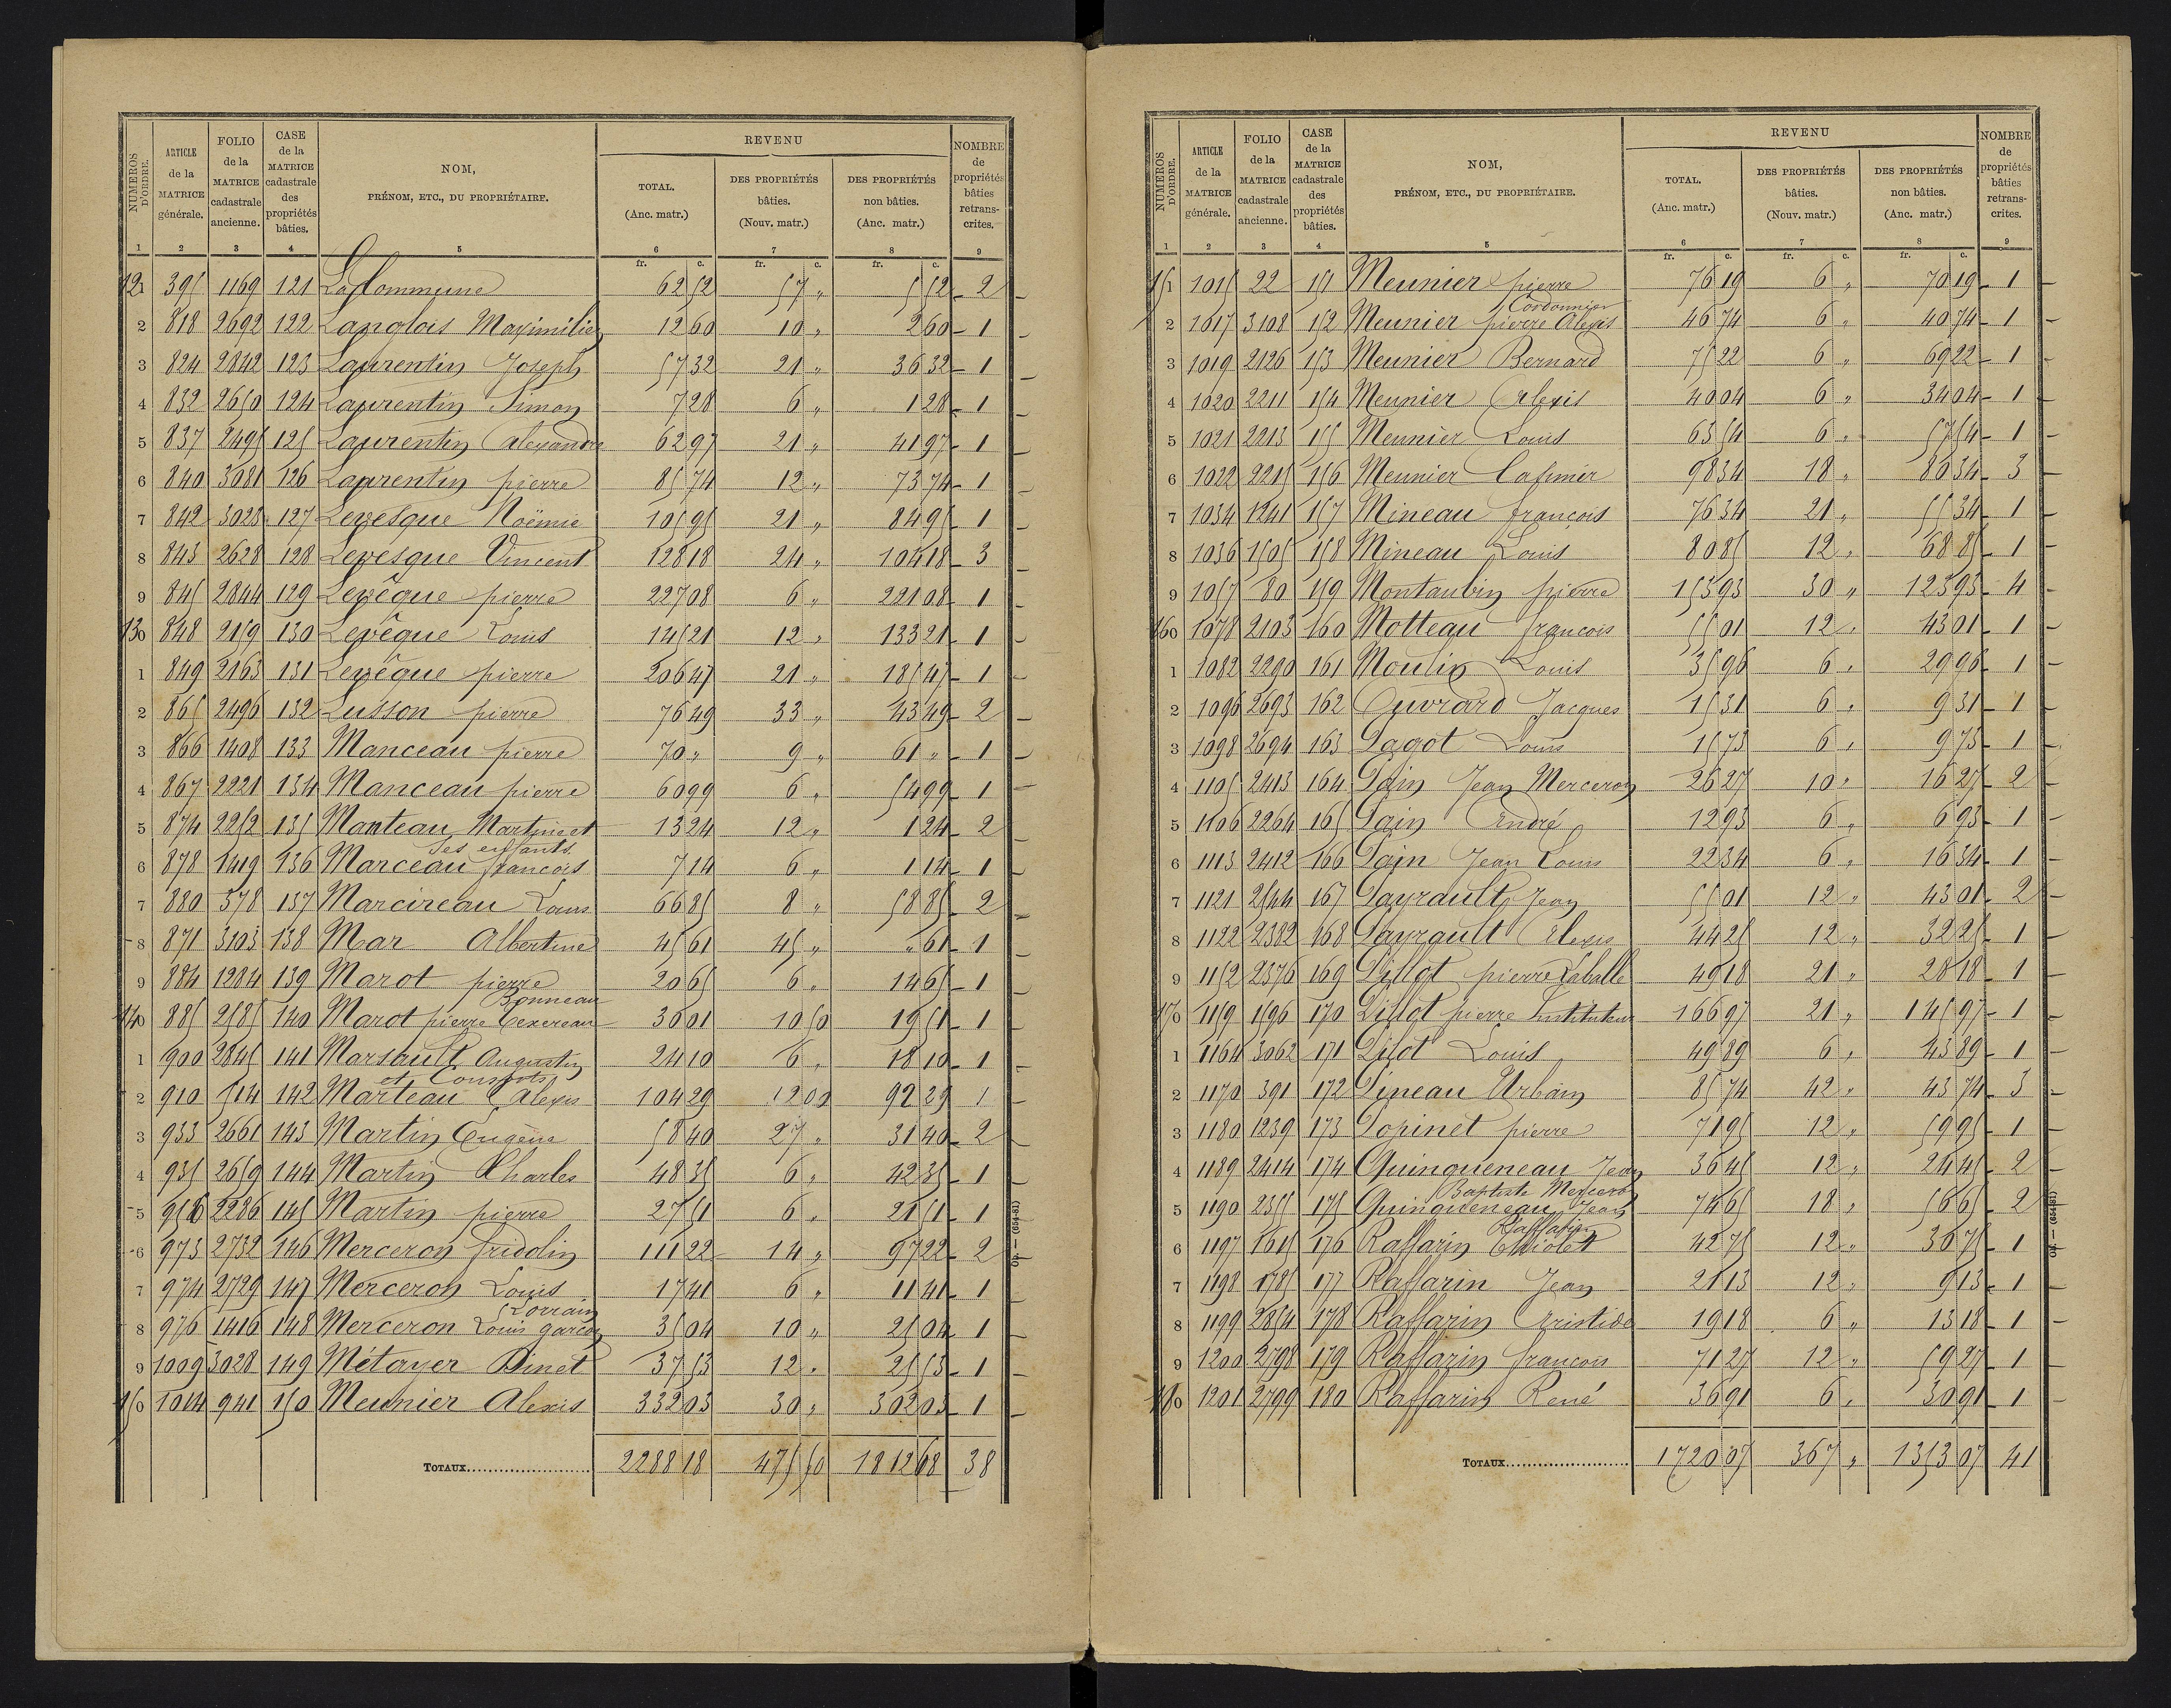 NUMÉROS D'ORDRE. | ARTICLE de la MATRICE générale. | FOLIO de la MATRICE cadastrale ancienne. | CASE de la MATRICE cadastrale des propriétés bâties. | NOM, PRÉNOM, ETC., DU PROPRIÉTAIRE. | REVENU TOTAL. (Anc. matr.) | DES PROPRIÉTÉS bâties. (Nouv. matr.) | DES PROPRIÉTÉS non bâties. (Anc. matr.) | NOMBRE de propriétés bâties retranscrites.
1 2 3 4 5 6 7 8 9
fr. c. fr. c. fr. c.
121 395 1169 121 La Commune 62 52 57 " 5 52 2
2 818 2692 122 Langlois Maximilien 12 60 10 " 2 60 1
3 824 2842 123 Laurentin Joseph 57 32 21 " 36 32 1
4 832 2650 124 Laurentin Simon 7 28 6 " 1 28 1
5 837 2495 125 Laurentin Alexandre 62 97 21 " 41 97 1
6 840 3081 126 Laurentin pierre 85 74 12 " 73 74 1
7 842 3028 127 Levesque Noëmie 105 95 21 " 84 95 1
8 843 2628 128 Levesque Vincent 128 18 24 " 104 18 3
9 845 2844 129 Levêque pierre 227 08 6 " 221 08 1
130 848 2159 130 Levêque Louis 145 21 12 " 133 21 1
1 849 2163 131 Levêque pierre 206 47 21 " 185 47 1
2 865 2496 132 Lusson pierre 76 49 33 " 43 49 2
3 866 1408 133 Manceau pierre 70 " 9 " 61 " 1
4 867 2221 134 Manceau pierre 60 99 6 " 54 99 1
5 874 2252 135 Manteau, Martin et 13 24 12 " 1 24 2
ses enfants
6 878 1419 136 Marceau françois 7 14 6 " 1 14 1
7 880 578 137 Marcireau Louis 66 85 8 " 58 85 2
8 871 3103 138 Mar Albertine 45 61 45 " " 61 1
9 884 1284 139 Marot pierre 20 65 6 " 14 65 1
Bonneau
140 885 2585 140 Marot pierre Texereau 30 01 10 50 19 51 1
1 900 2845 141 Marsault Augustin 24 10 6 " 18 10 1
et Consorts
2 910 514 142 Marteau Alexis 104 29 12 00 92 29 1
3 933 2661 143 Martin Eugène 58 40 27 " 31 40 2
4 935 2659 144 Martin Charles 48 35 6 " 42 35 1
5 2286 145 Martin pierre 27 51 6 " 21 51 1
6 973 2732 146 Merceron fridolin 111 22 14 " 97 22 2
7 974 2729 147 Merceron Louis 17 41 6 " 11 41 1
Lorrain
8 976 1416 148 Merceron Louis garçon 35 04 10 " 25 04 1
9 1009 3028 149 Métayer Binet 37 53 12 " 25 53 1
150 1014 941 150 Meunier Alexis 332 03 30 " 302 03 1
TOTAUX 2288 18 475 50 1812 68 38
Op. — (654-81)
NUMÉROS D'ORDRE. | ARTICLE de la MATRICE générale. | FOLIO de la MATRICE cadastrale ancienne. | CASE de la MATRICE cadastrale des propriétés bâties. | NOM, PRÉNOM, ETC., DU PROPRIÉTAIRE. | REVENU TOTAL. (Anc. matr.) | DES PROPRIÉTÉS bâties. (Nouv. matr.) | DES PROPRIÉTÉS non bâties. (Anc. matr.) | NOMBRE de propriétés bâties retranscrites.
1 2 3 4 5 6 7 8 9
fr. c. fr. c. fr. c.
151 1015 22 151 Meunier pierre 76 19 6 " 70 19 1
Cordonnier
2 1017 3108 152 Meunier pierre Alexis 46 74 6 " 40 74 1
3 1019 2126 153 Meunier Bernard 75 22 6 " 69 22 1
4 1020 2211 154 Meunier Alexis 40 04 6 " 34 04 1
5 1021 2213 155 Meunier Louis 63 54 6 " 57 54 1
6 1022 2215 156 Meunier Casimir 98 34 18 " 80 34 3
7 1034 1241 157 Mineau françois 76 34 21 " 55 34 1
8 1036 1505 158 Mineau Louis 80 85 12 " 68 85 1
9 1057 80 159 Montaubin pierre 153 93 30 " 123 93 4
160 1078 2103 160 Motteau françois 55 01 12 " 43 01 1
1 1082 2290 161 Moulin Louis 35 96 6 " 29 96 1
2 1096 2693 162 Ouvrard Jacques 15 31 6 " 9 31 1
3 1098 2694 163 Pagot Louis 15 73 6 " 9 73 1
4 1105 2413 164 Pain Jean Merceron 26 27 10 " 16 27 2
5 1106 2264 165 Pain André 12 93 6 " 6 93 1
6 1113 2412 166 Pain Jean Louis 22 34 6 " 16 34 1
7 1121 2544 167 Payrault Jean 55 01 12 " 43 01 2
8 1122 2382 168 Payrault Alexis 44 25 12 " 32 25 1
9 1152 2376 169 Pillot pierre Laballe 49 18 21 " 28 18 1
170 1159 1596 170 Pillot pierre Instituteur 166 97 21 " 145 97 1
1 1164 3062 171 Pilot Louis 49 89 6 " 43 89 1
2 1170 391 172 Pineau Urbain 85 74 42 " 43 74 3
3 1180 1239 173 Popinet pierre 71 95 12 " 59 95 1
4 1189 2414 174 Quinqueneau Jean 36 45 12 " 24 45 2
Baptiste Merceron
5 1190 2355 175 Quinqueneau Jean 74 65 18 " 56 65 2
Raffarin
6 1197 1615 176 Raffarin Thiolet 42 75 12 " 30 75 1
7 1198 1785 177 Raffarin Jean 21 13 12 " 9 13 1
8 1199 2854 178 Raffarin Aristide 19 18 6 " 13 18 1
9 1200 2798 179 Raffarin françois 71 27 12 " 59 27 1
180 1201 2799 180 Raffarin René 36 91 6 " 30 91 1
TOTAUX 1720 07 367 " 1353 07 41
Op. — (654-81)